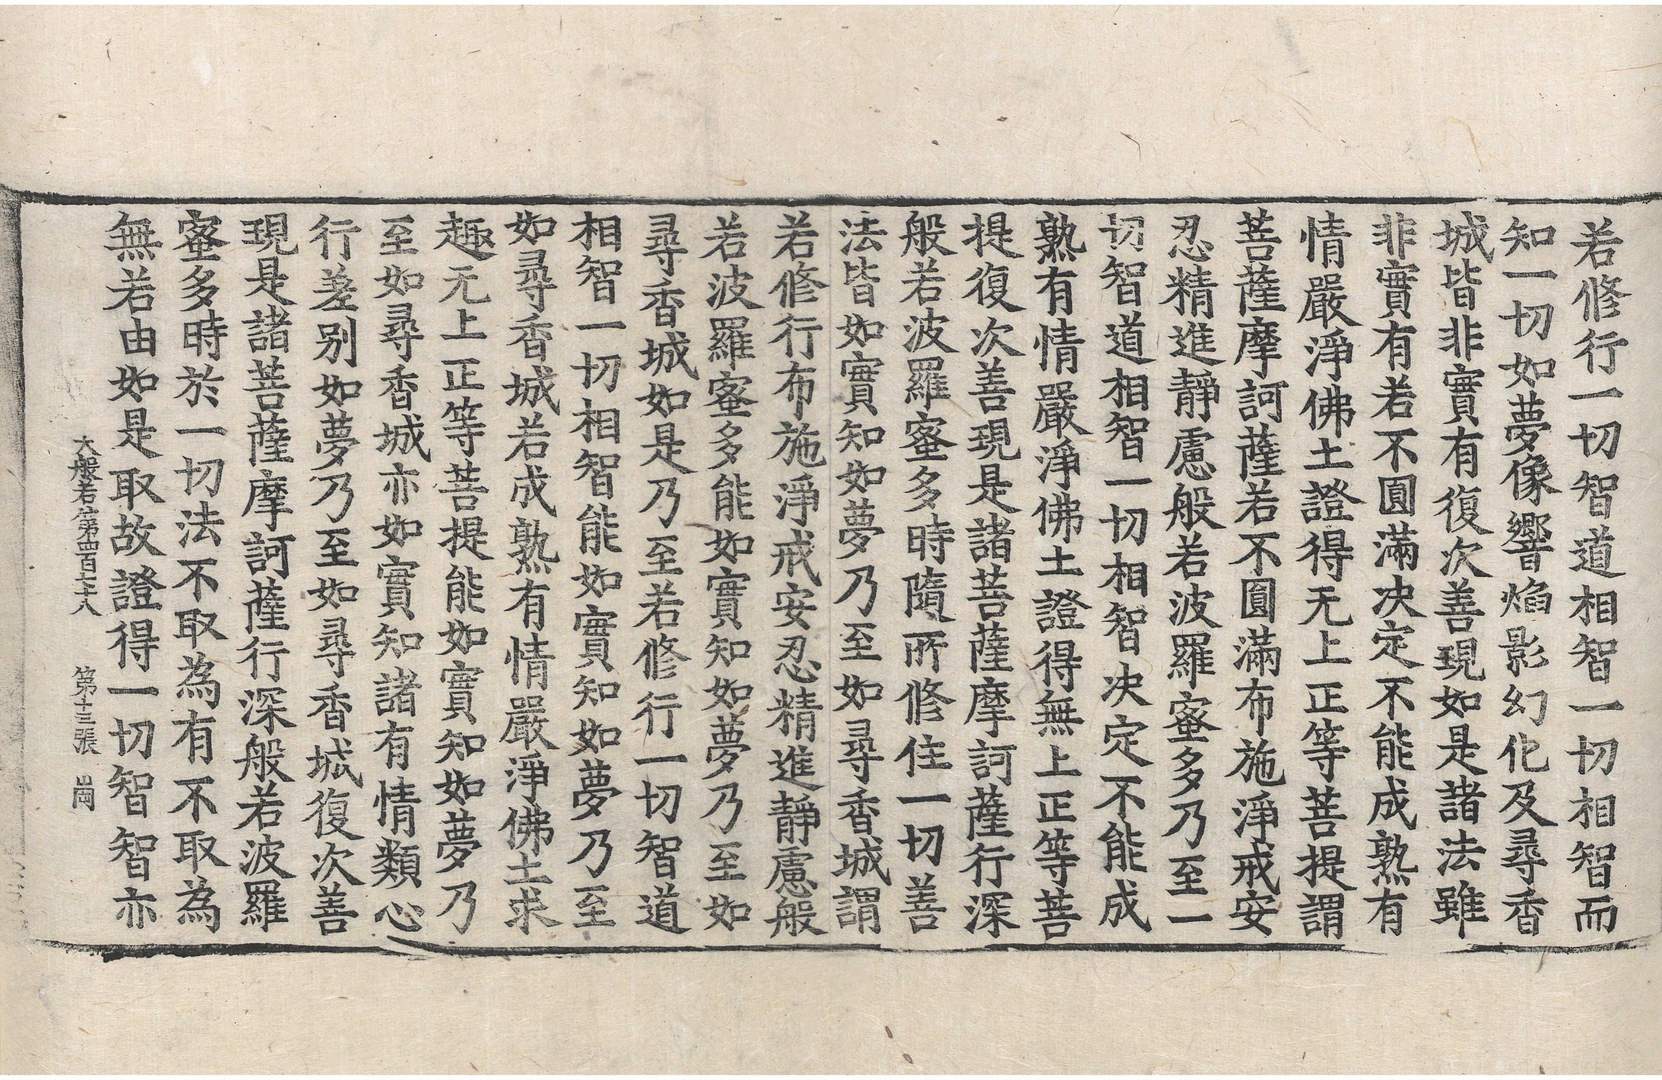 若修行一切智道相智一切相智而
知一切如夢像響焰影幻化及尋香
城皆非實有復次善現如是諸法雖
非實有若不圓滿決定不能成熟有
情嚴淨佛土證得无上正等菩提謂
菩薩摩訶薩若不圓滿布施淨戒安
忍精進靜慮般若波羅蜜多乃至一
切智道相智一切相智决定不能成
熟有情嚴淨佛土證得無上正等菩
提復次善現是諸菩薩摩訶薩行深
般若波羅蜜多時隨所修住一切善
法皆如實知如夢乃至如尋香城謂
若修行布施淨戒安忍精進靜慮般
若波羅蜜多能如實知如夢乃至如
尋香城如是乃至若修行一切智道
相智一切相智能如實知如夢乃至
如尋香城若成熟有情嚴淨佛土求
趣无上正等菩提能如實知如夢乃
至如尋香城亦如實知諸有情類心
行差别如夢乃至如尋香城復次善
現是諸菩薩摩訶薩行深般若波羅
蜜多時於一切法不取為有不取為
無若由如是取故證得一切智智亦
大般若第四百七十八 第十三張 崗